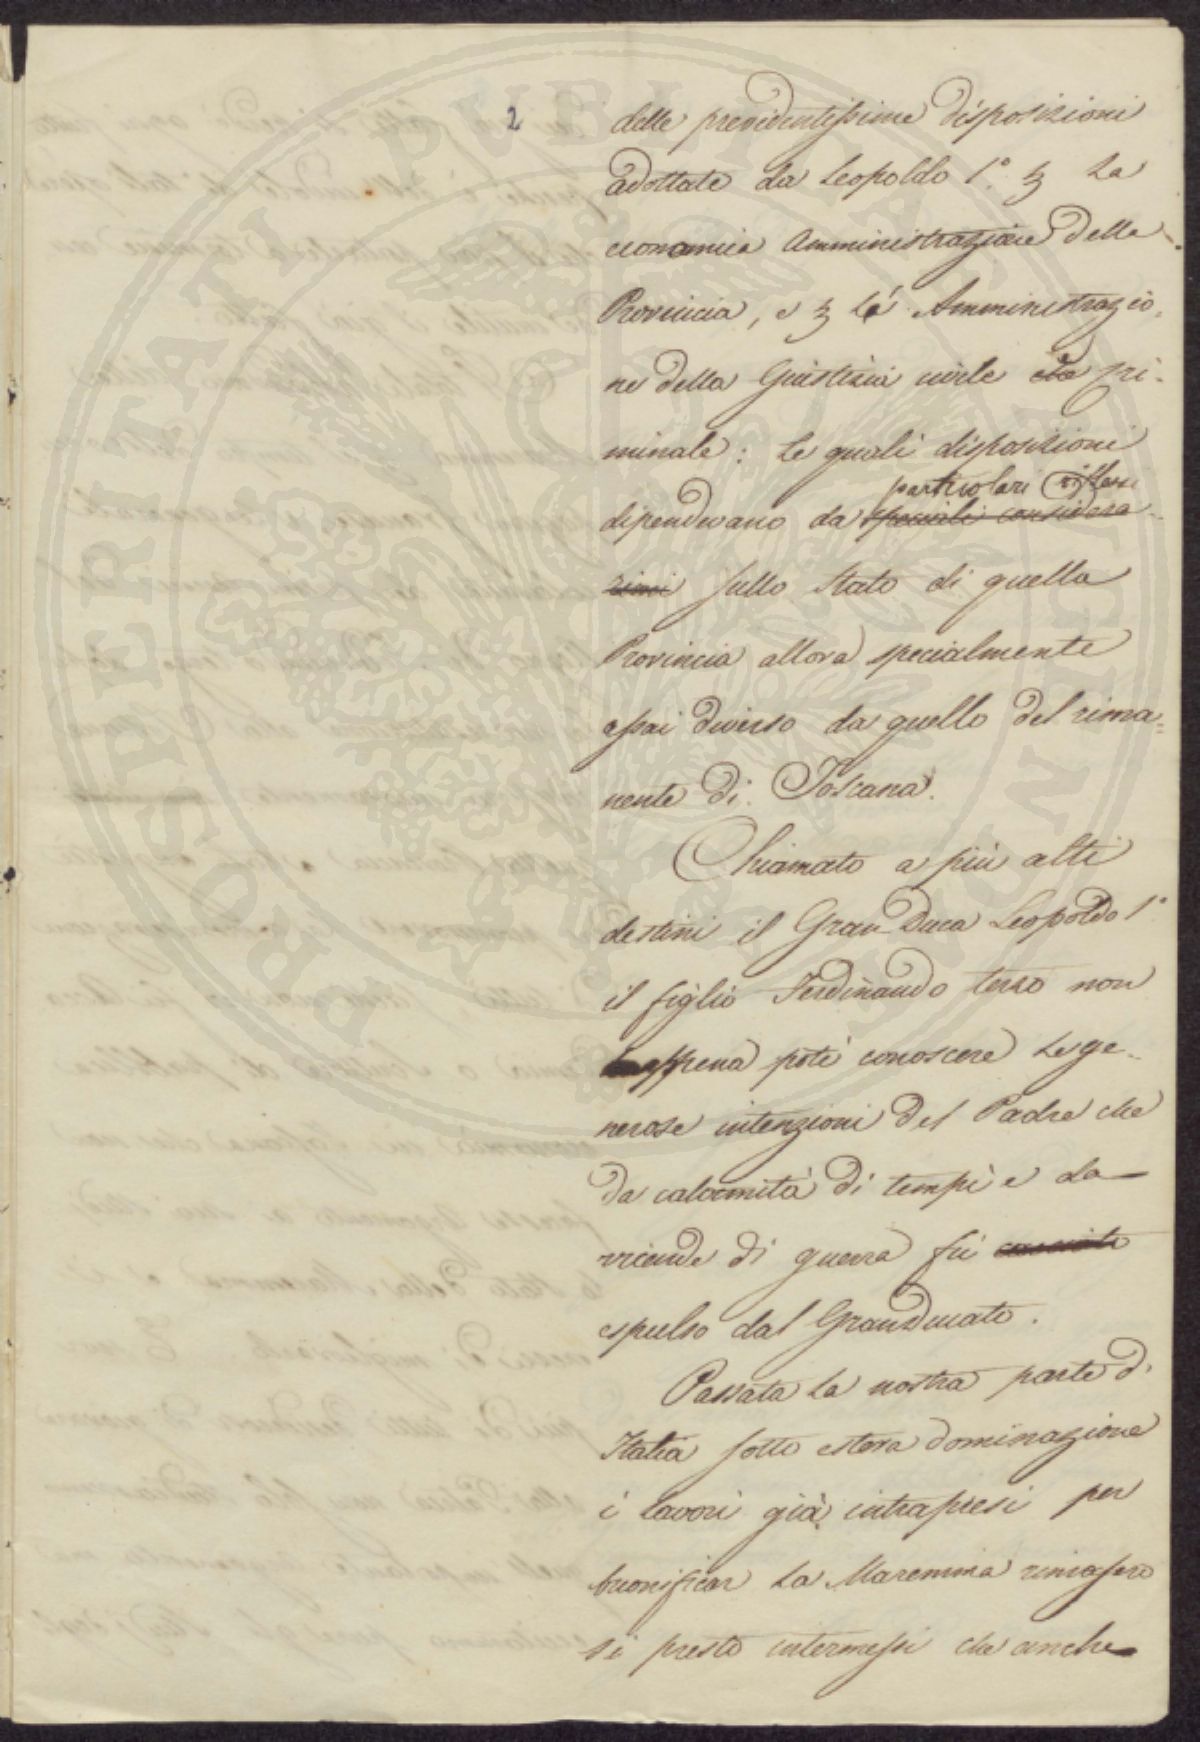 2
delle previdentissime disposizioni
adottate da Leopoldo 1.° ꝫ la
economica Amministrazione della
Provincia, e ꝫ la Amministrazio-
ne della Giustizia civile e cri-
minale: le quali disposizioni
particolari riflessi
dipendevano da speciali considera-
zioni sullo Stato di quella
Provincia allora specialmente
assai diverso da quello del rima=
nente di Toscana.
Chiamato a più alti
destini il Gran Duca Leopoldo 1°
il figlio Ferdinando terzo non
appena potè conoscere le ge-
nerose intenzioni del Padre che
da calamità di tempi e da
vicende di guerra fù
espulso dal Granducato.
Passata la nostra parte d'
Italia sotto estera dominazione
i lavori già intrapresi per
buonificar la Maremma rimasero
sì presto intermessi che anche
PROSPERITATI PUBLICAE